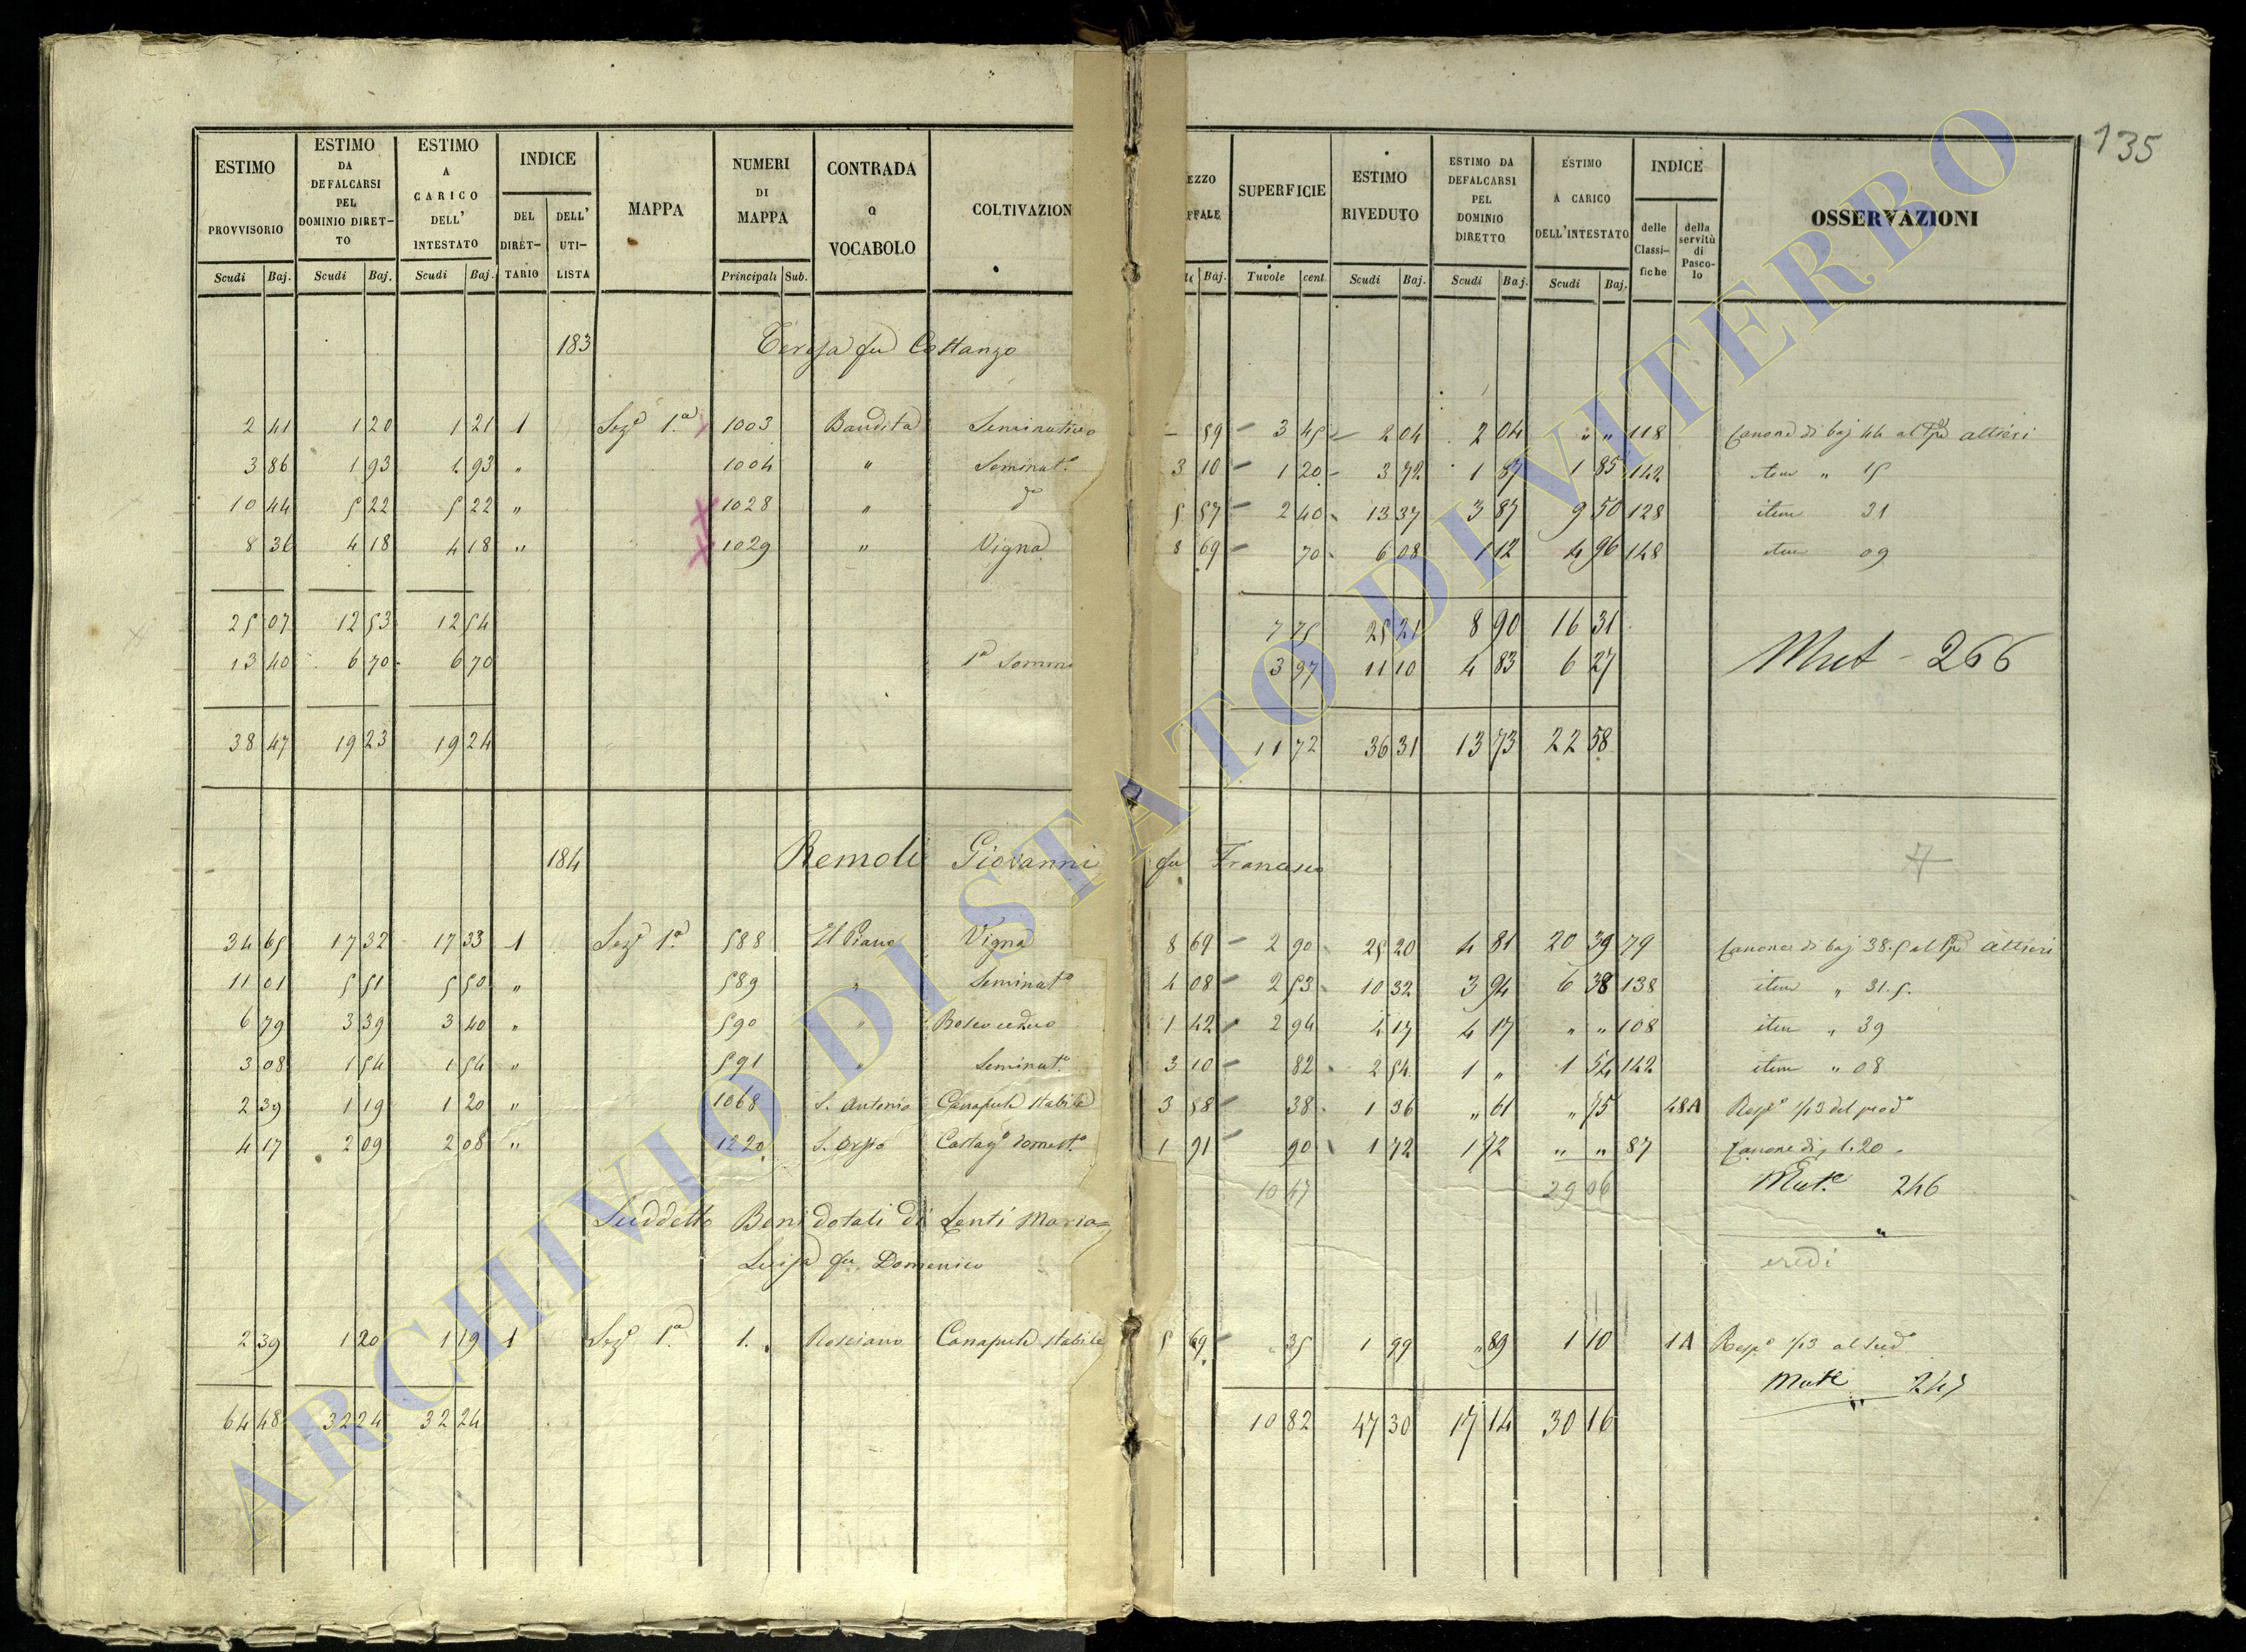 135
ESTIMO PROVVISORIO Scudi Baj.
ESTIMO DA DEFALCARSI PEL DOMINIO DIRETTO Scudi Baj.
ESTIMO A CARICO DELL' INTESTATO Scudi Baj.
INDICE DEL DIRETTARIO DELL' UTILISTA
MAPPA
NUMERI DI MAPPA Principali Sub.
CONTRADA O VOCABOLO
COLTIVAZION
EZZO FFALE Baj.
SUPERFICIE Tavole cent.
ESTIMO RIVEDUTO Scudi Baj.
ESTIMO DA DEFALCARSI PEL DOMINIO DIRETTO Scudi Baj.
ESTIMO A CARICO DELL'INTESTATO Scudi Baj.
INDICE delle Classifiche della servitù di Pascolo
OSSERVAZIONI
183 Teresa fu Costanzo
2 41 1 20 1 21 1 Sezᵉ 1ª 1003 Bandita Seminativo – 59 3 45 2 04 2 04 " " 118 Canone di baj 44 al Altieri
3 86 1 93 1 93 " 1004 " Seminatº 3 10 1 20 3 72 1 87 1 85 142 item " 15
10 44 5 22 5 22 " 1028 " dº 5 57 2 40 13 37 3 87 9 50 128 item 31
8 36 4 18 4 18 " 1029 " Vigna 8 69 70 6 08 1 12 4 96 148 item 09
25 07 12 53 12 54 7 75 25 21 8 90 16 31
13 40 6 70 6 70 Somma 3 97 11 10 4 83 6 27 Mut - 266
38 47 19 23 19 24 11 72 36 31 13 73 22 58
184 Remoli Giovanni fu Francesco
34 65 17 32 17 33 1 Sezᵉ 1ª 588 Il Piano Vigna 8 69 2 90 25 20 4 81 20 39 79 Canone di baj 38.5 al Altieri
11 01 5 51 5 50 " 589 " Seminatº 4 08 2 53 10 32 3 94 6 38 138 item " 31.5.
6 79 3 39 3 40 " 590 " Bosco ceduo 1 42 2 94 4 17 4 17 " " 108 item " 39
3 08 1 54 1 54 " 591 " Seminatº 3 10 82 2 54 1 " 1 54 142 item " 08
2 39 1 19 1 20 " 1068 S. Antonio Canapule stabile 3 58 38 1 36 " 61 " 75 48A Rispª 1/13 del prodº
4 17 2 09 2 08 " 1220 Castagº domestº 1 91 90 1 72 1 72 " " 87 Canone di 1.20
10 47 29 06 Mutᵉ 246
Suddetto Beni dotali di Lenti Maria=
Luisa fu Domenico
eredi
2 39 1 20 1 19 1 Sezᵉ 1ª 1. Rosciano Canapule stabile 5 69 35 1 99 " 89 1 10 1A Rispª 1/13 al sudº
Mutᵉ 247
64 48 32 24 32 24 10 82 47 30 17 14 30 16
ARCHIVIO DI STATO DI VITERBO